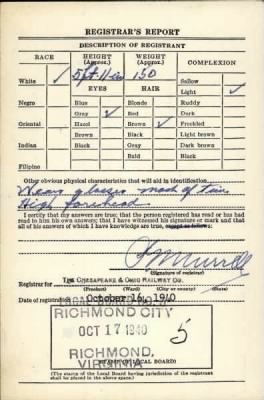 REGISTRAR'S REPORT
DESCRIPTION OF REGISTRANT
RACE HEIGHT (Approx.) WEIGHT (Approx.) COMPLEXION
White ✓ 5 ft 11 in 150 Sallow
EYES HAIR Light ✓
Negro Blue Blonde Ruddy
Gray ✓ Red Dark
Oriental Hazel Brown ✓ Freckled
Brown Black Light brown
Indian Black Gray Dark brown
Bald Black
Filipino
Other obvious physical characteristics that will aid in identification
Wears glasses most of time
High forehead
I certify that my answers are true; that the person registered has read or has had read to him his own answers; that I have witnessed his signature or mark and that all of his answers of which I have knowledge are true, except as follows:
(Signature of registrar)
Registrar for The Chesapeake & Ohio Railway Co.
(Precinct) (Ward) (City or county) (State)
Date of registration October 16, 1940
LOCAL BOARD
RICHMOND CITY
OCT 17 1940
5
RICHMOND,
VIRGINIA
(STAMP OF LOCAL BOARD)
(The stamp of the Local Board having jurisdiction of the registrant shall be placed in the above space.)